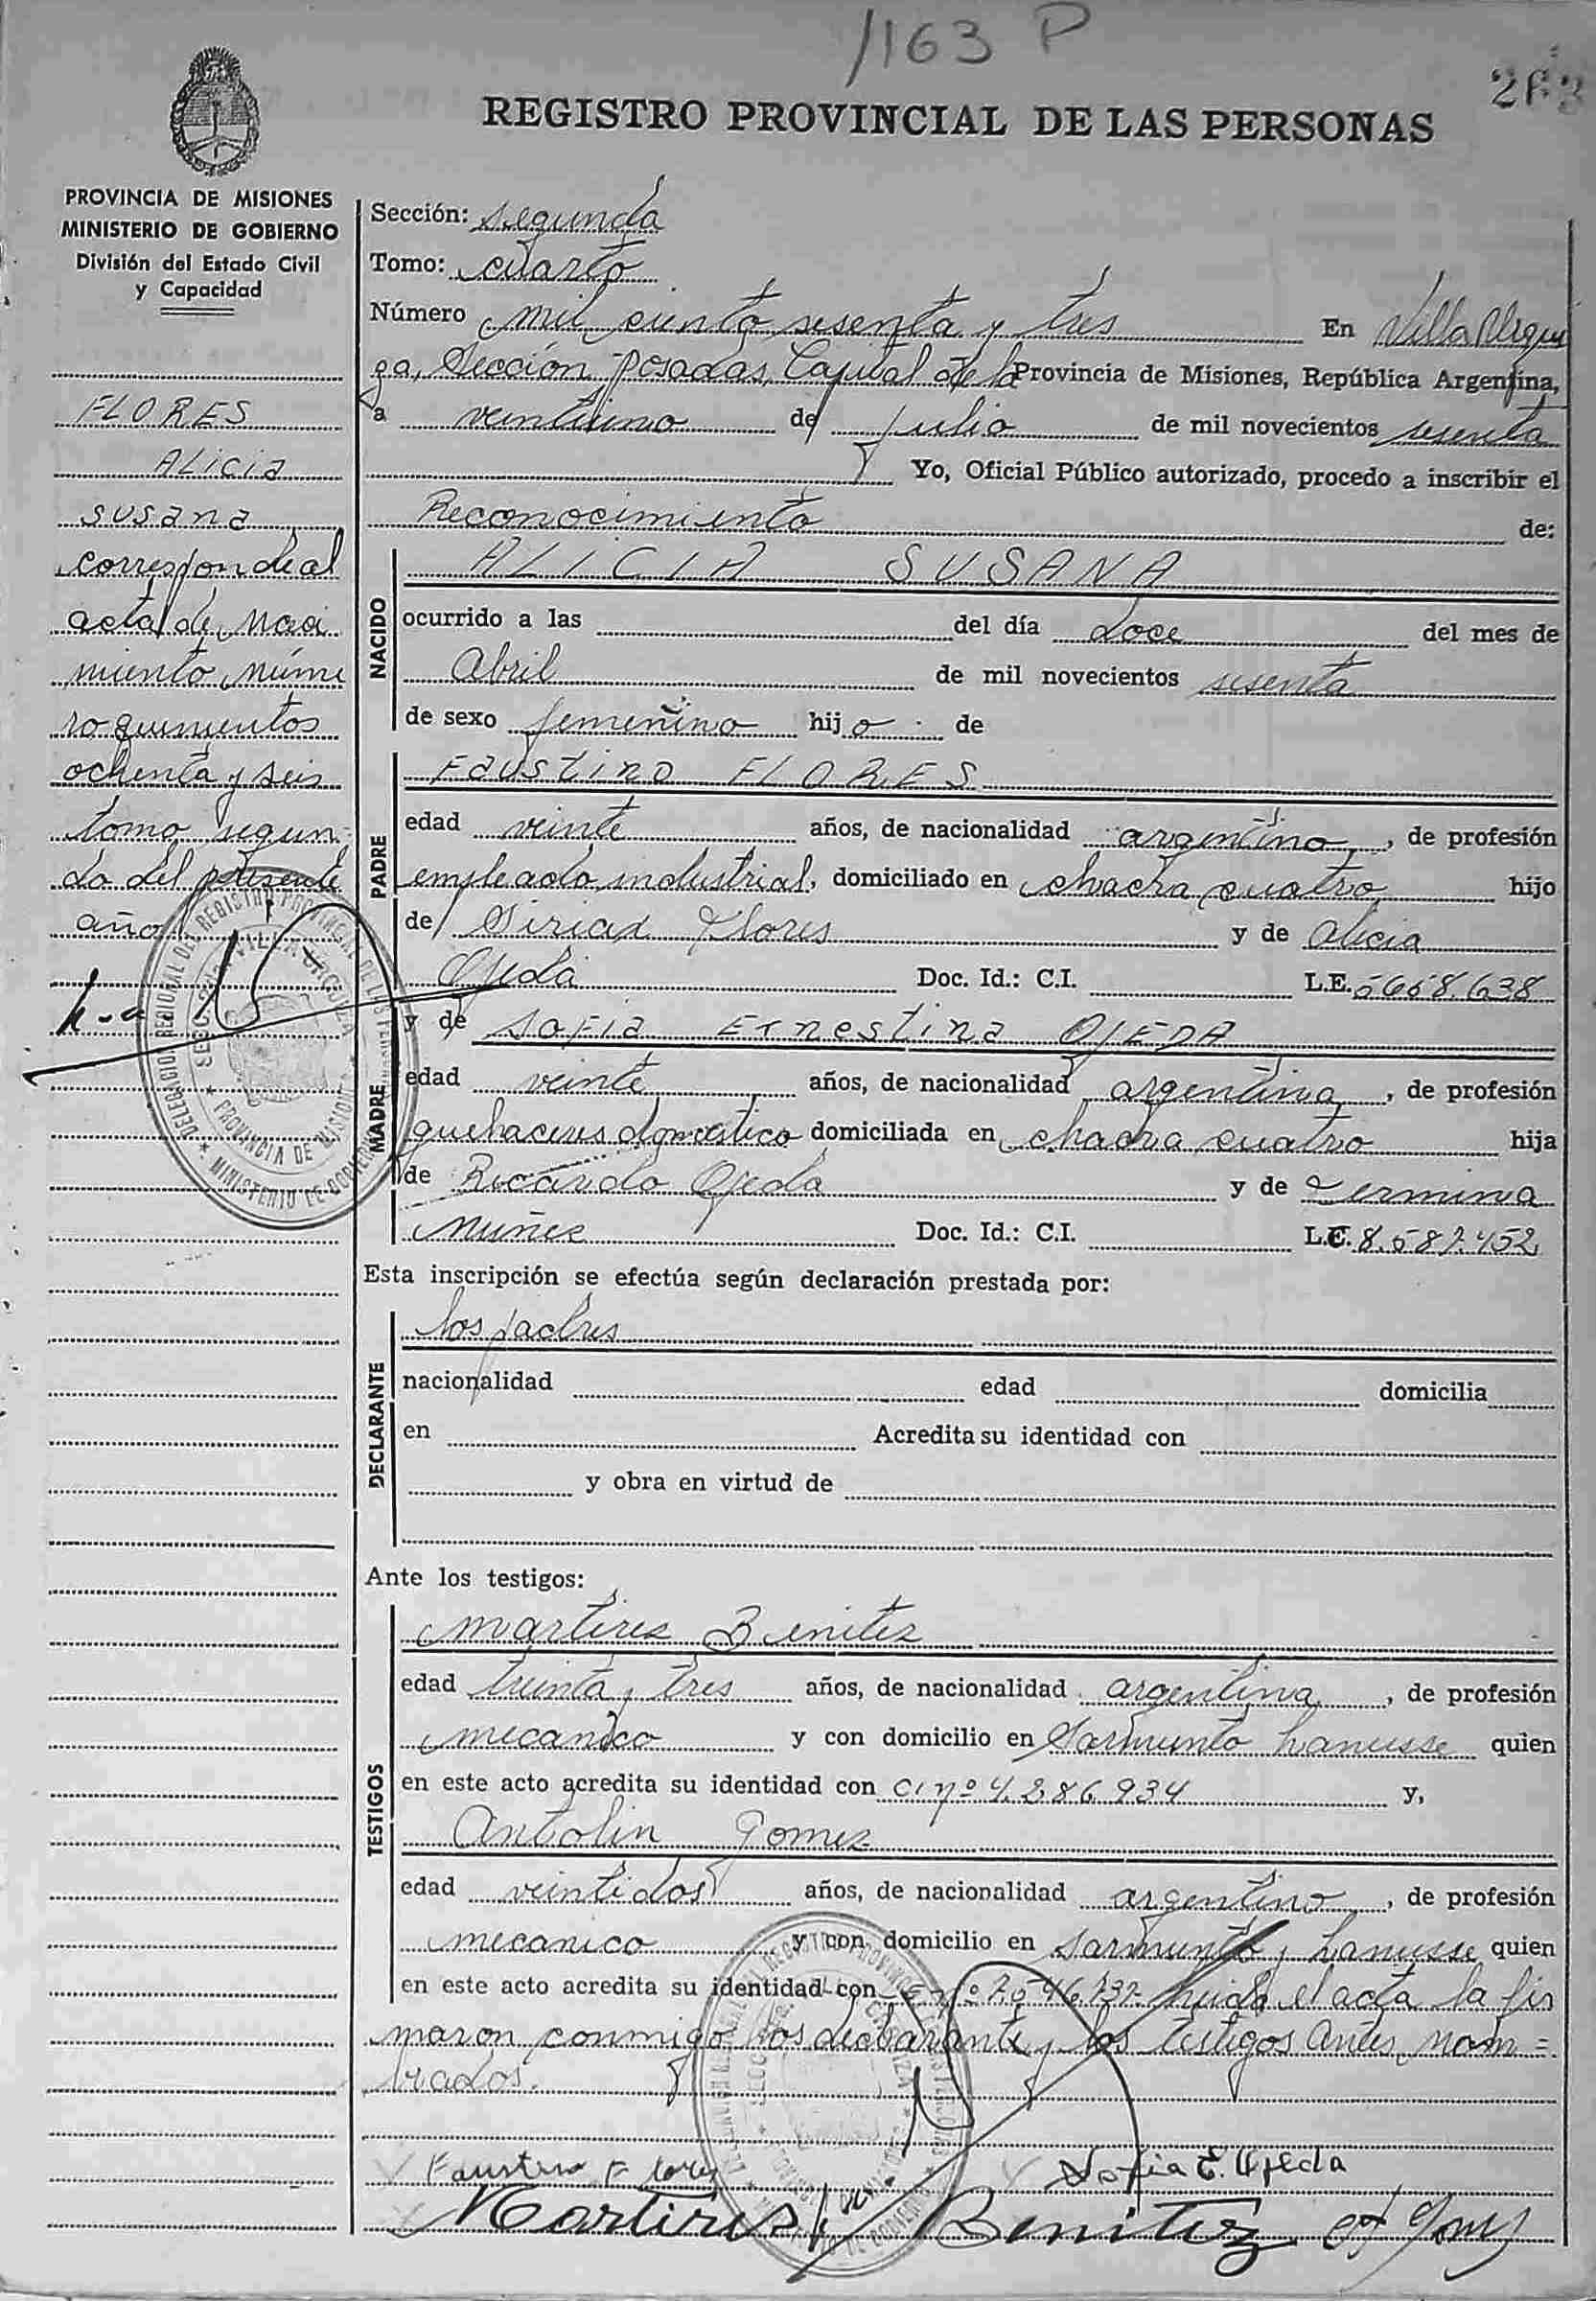 1163 P
REGISTRO PROVINCIAL DE LAS PERSONAS
PROVINCIA DE MISIONES
MINISTERIO DE GOBIERNO
División del Estado Civil
y Capacidad
FLORES
ALICIA
SUSANA
corresponde al
acta de Naci
miento núme
ro quinientos
ochenta y seis
tomo segun=
do del presente
año
Sección: segunda
Tomo: cuarto
Número mil ciento sesenta y tres En Villa Urqui
ga, Sección Posadas, Capital de la Provincia de Misiones, República Argentina,
a veintiuno de julio de mil novecientos sesenta
Yo, Oficial Público autorizado, procedo a inscribir el
Reconocimiento de:
NACIDO
ALICIA SUSANA
ocurrido a las del día doce del mes de
Abril de mil novecientos sesenta
de sexo femenino hijo de
PADRE
Faustino FLORES
edad veinte años, de nacionalidad argentino, de profesión
empleado industrial, domiciliado en chacra cuatro hijo
de Flores y de Alicia
Ojeda Doc. Id.: C.I. L.E.
MADRE
y de Sofia Ernestina OJEDA
edad veinte años, de nacionalidad argentina, de profesión
quehaceres domestico domiciliada en chacra cuatro hija
de Ricardo Ojeda y de
Muñez Doc. Id.: C.I. L.C.
Esta inscripción se efectúa según declaración prestada por:
DECLARANTE
los padres
nacionalidad edad domicilia
en Acredita su identidad con
y obra en virtud de
Ante los testigos:
TESTIGOS
Martires Benitez
edad treinta y tres años, de nacionalidad argentina, de profesión
mecanico y con domicilio en Sarmiento Lanusse quien
en este acto acredita su identidad con CI nº 4.286.934 y,
Antolin Gomez
edad veintidos años, de nacionalidad argentino, de profesión
mecanico y con domicilio en Sarmiento y Lanusse quien
en este acto acredita su identidad con leida el acta la fir
maron conmigo los declarante y los testigos antes nom=
brados.
Faustino Flores Sofia E. Ojeda
Martires Benitez